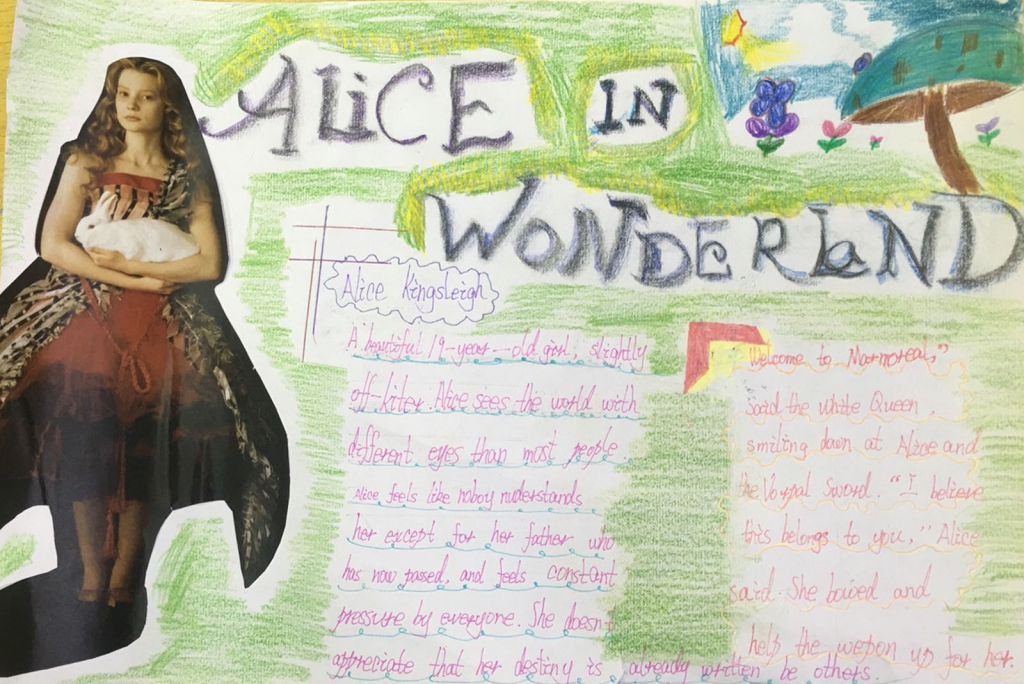 ALiCE IN
WONDERLaND
Alice Kingsleigh
A beautiful 19-year--old girl, slightly
off-kiter. Alice sees the world with
different eyes than most people.
Alice feels like noboy nuderstands
her except for her father who
has now passed, and feels constant
pressure by everyone. She doesn't
appreciate that her destiny is already written be others.
Welcome to Marmoreal,"
said the White Queen.
smiling down at Alice and
the Vorpal Sword. "I believe
this belongs to you," Alice
said. She bowed and
help the wepon up for her.